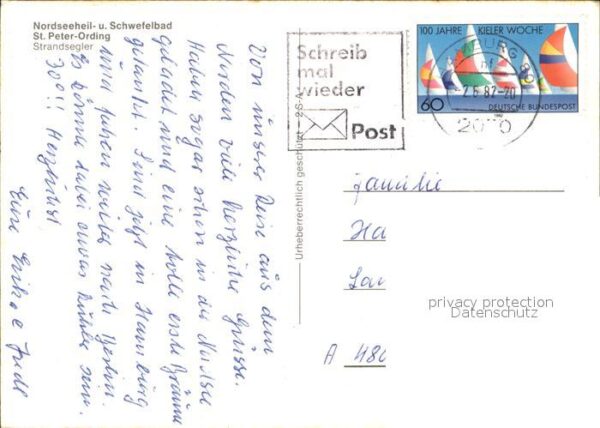 Nordseeheil- u. Schwefelbad
St. Peter-Ording
Strandsegler
Von unserer Reise aus dem
Norden viele herzliche Grüsse.
Haben sogar schon in der Nordsee
gebadet und eine tolle erste Bräune
getankt. Sind jetzt in Hamburg
und fahren weiter nach Berlin.
Es könnte dabei etwas kühler sein.
30°!! Herzlichst
Eure Erika e Fredl
Urheberrechtlich geschützt
Schreib
mal
wieder
Post
100 JAHRE KIELER WOCHE
60
DEUTSCHE BUNDESPOST
1982
HAMBURG
-7.6.82-20
2000
Familie
Ha
Lau
A 480
privacy protection
Datenschutz